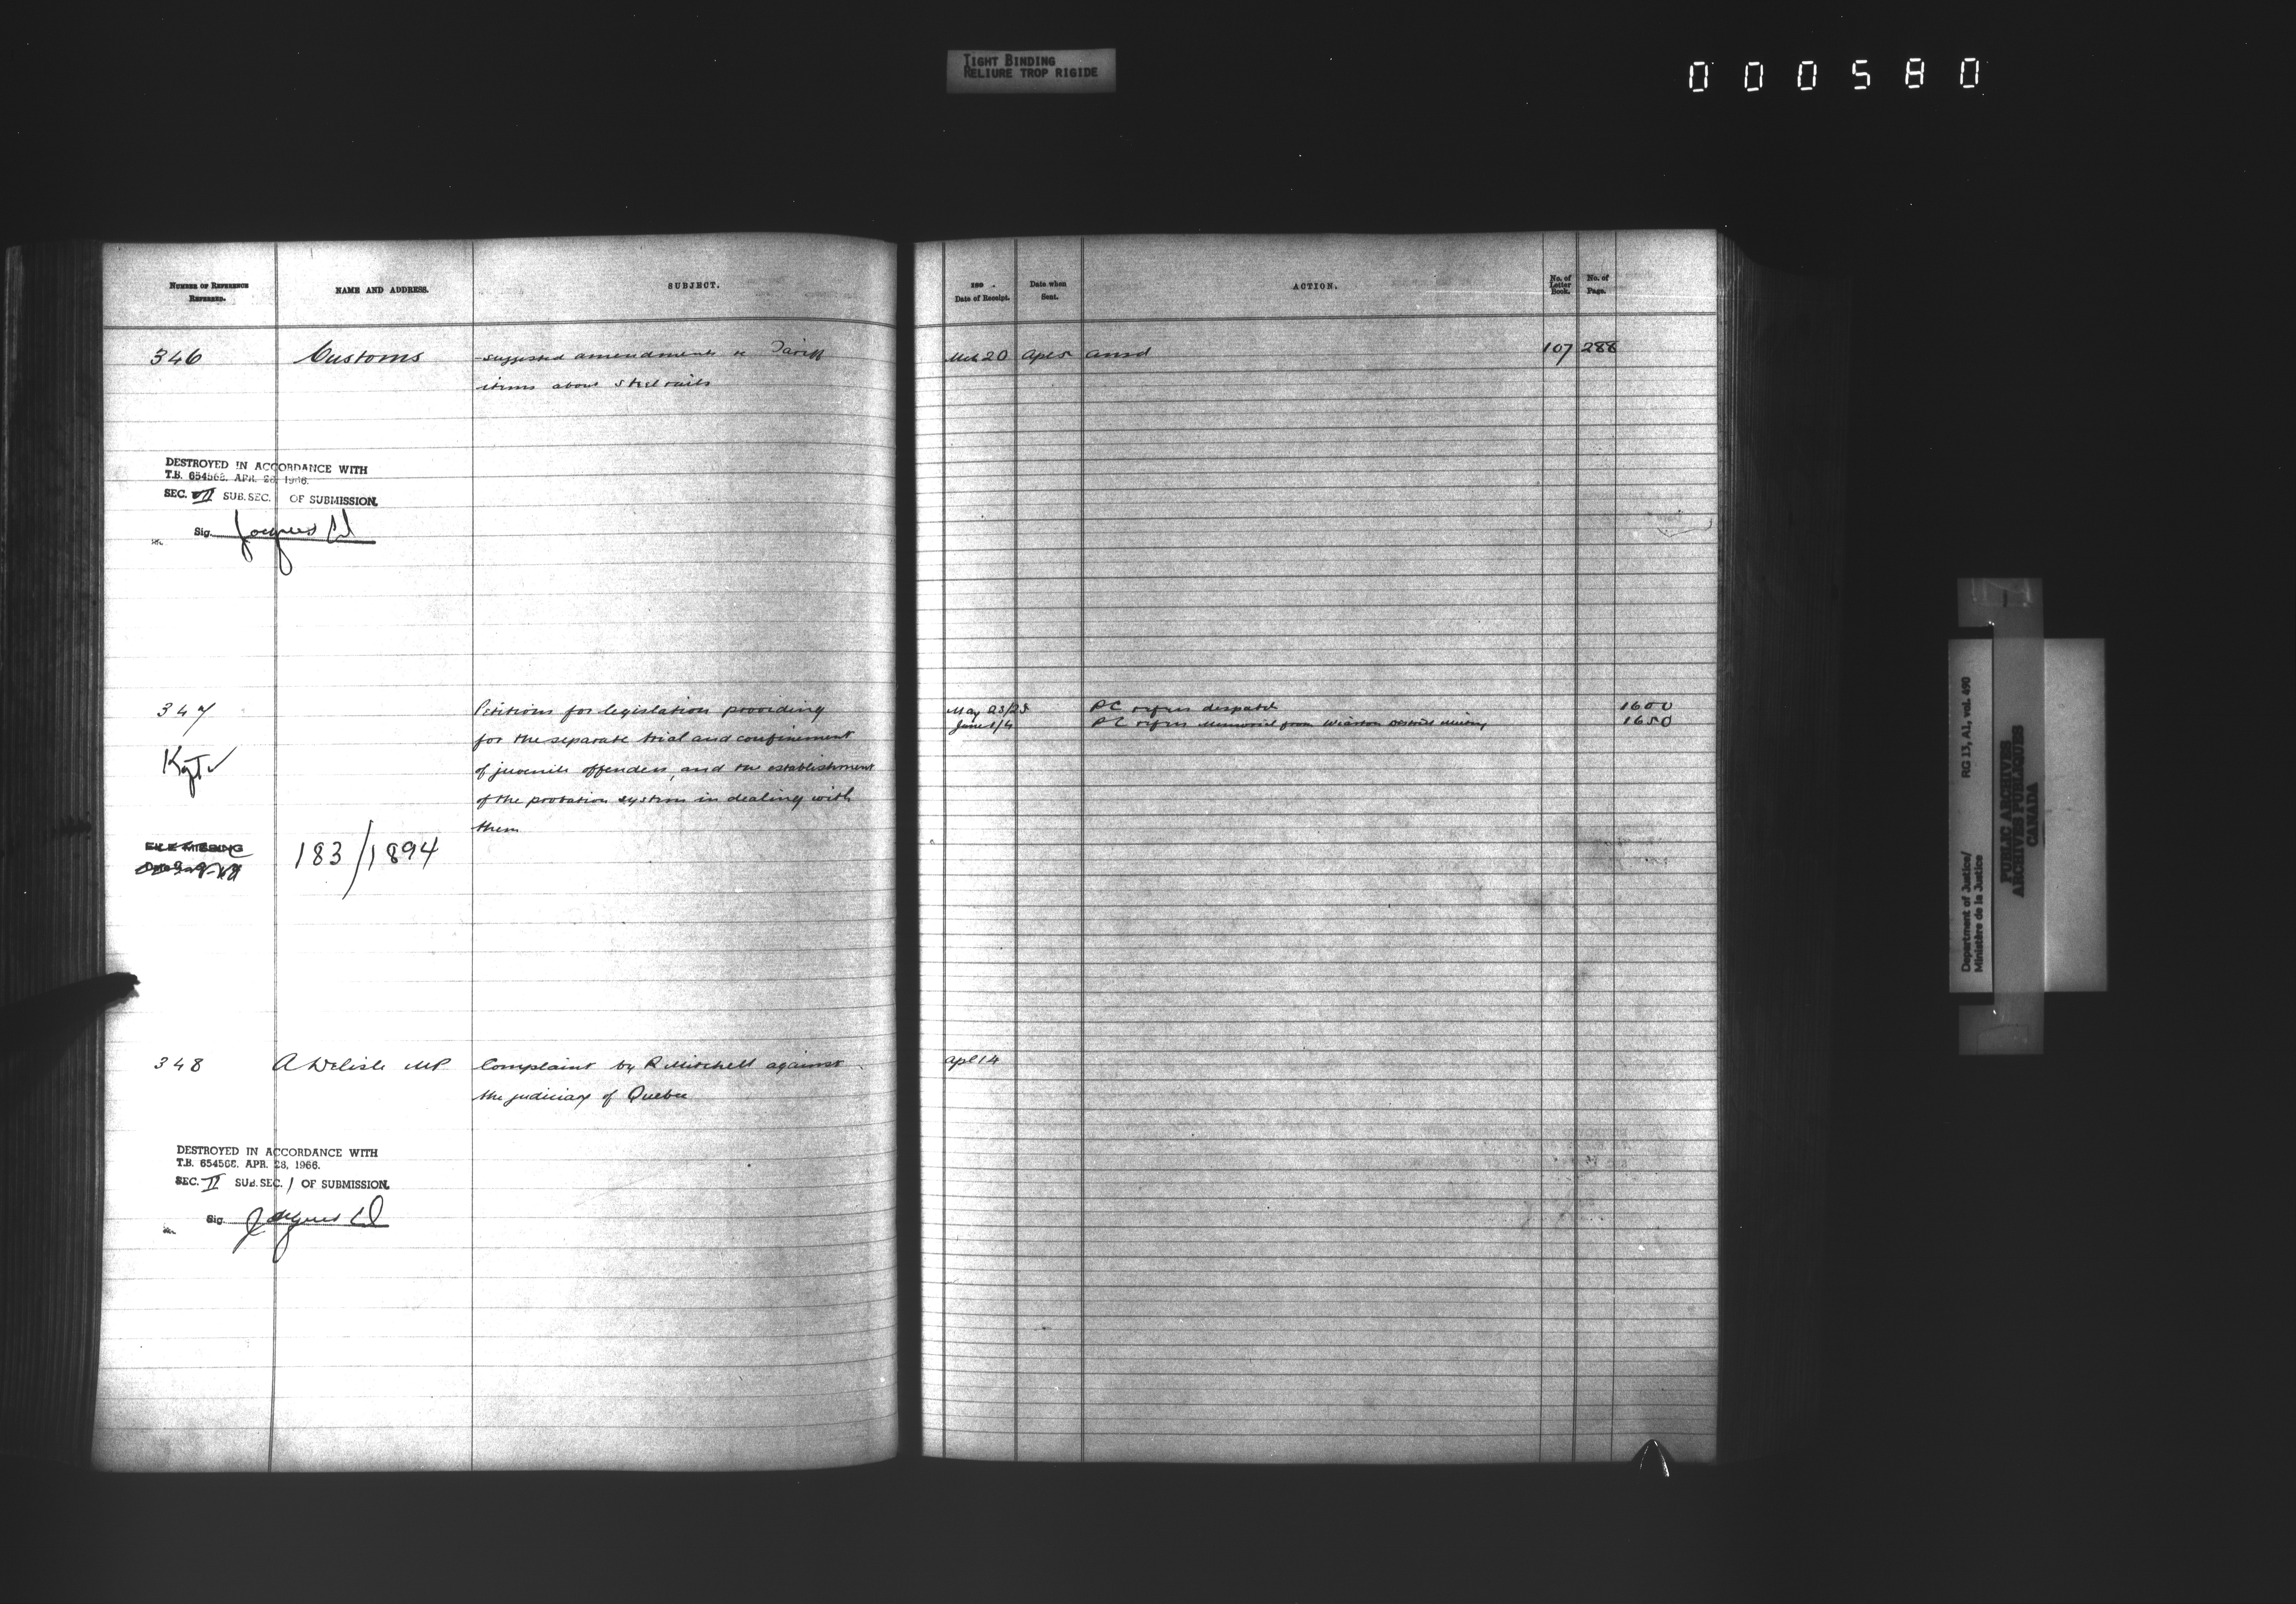 TIGHT BINDING
RELIURE TROP RIGIDE
000580
NUMBER OF REFERENCE
REFERRED.
NAME AND ADDRESS.
SUBJECT.
189 .
Date of Receipt.
Date when
Sent.
ACTION.
No. of
Letter
Book.
No. of
Page.
346 Customs suggested amendments re Tariff
items about steel rails
Mch 20 Apl 5 ansd 107 288
DESTROYED IN ACCORDANCE WITH
T.B. 654568. APR. 28, 1966.
SEC. VII SUB.SEC. OF SUBMISSION.
Sig. Jacques
347 Petitions for legislation providing
for the separate trial and confinement
of juvenile offenders, and the establishment
of the probation system in dealing with
them
May 23/25 PC refers despatch 1600
June 1/4 PC refers Memorial from Wiarton District 1650
FILE MISSING
183/1894
348 A Delisle MP Complaint by R Mitchell against
the judiciary of Quebec
Apl 14
DESTROYED IN ACCORDANCE WITH
T.B. 654568. APR. 28, 1966.
SEC. II SUB.SEC. 1 OF SUBMISSION.
Sig. Jacques
Department of Justice/ RG 13, A1, vol. 490
Ministère de la Justice
PUBLIC ARCHIVES
ARCHIVES PUBLIQUES
CANADA